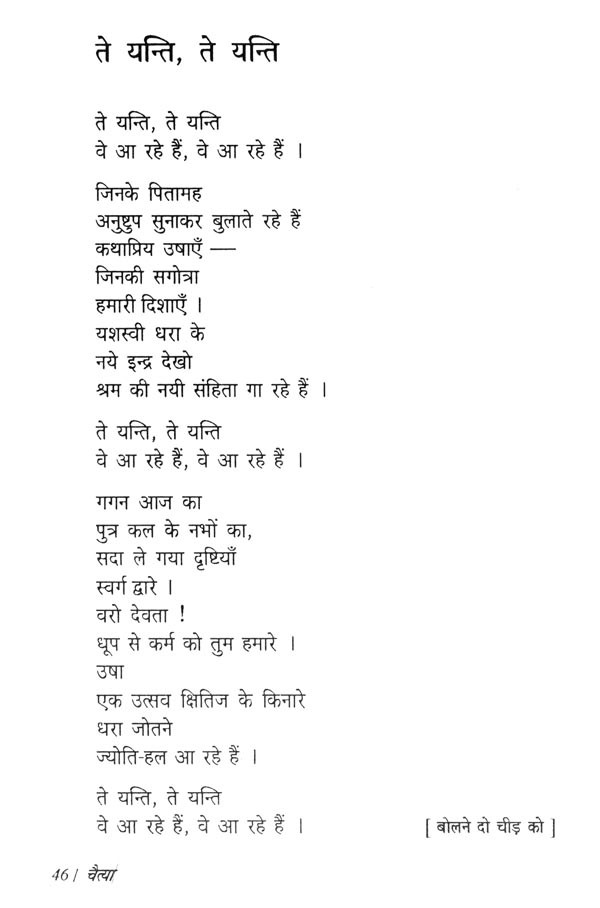 ते यन्ति, ते यन्ति
ते यन्ति, ते यन्ति
वे आ रहे हैं, वे आ रहे हैं ।
जिनके पितामह
अनुष्टुप सुनाकर बुलाते रहे हैं
कथाप्रिय उषाएँ —
जिनकी सगोत्रा
हमारी दिशाएँ ।
यशस्वी धरा के
नये इन्द्र देखो
श्रम की नयी संहिता गा रहे हैं ।
ते यन्ति, ते यन्ति
वे आ रहे हैं, वे आ रहे हैं ।
गगन आज का
पुत्र कल के नभों का,
सदा ले गया दृष्टियाँ
स्वर्ग द्वारे ।
वरो देवता !
धूप से कर्म को तुम हमारे ।
उषा
एक उत्सव क्षितिज के किनारे
धरा जोतने
ज्योति-हल आ रहे हैं ।
ते यन्ति, ते यन्ति
वे आ रहे हैं, वे आ रहे हैं ।
[ बोलने दो चीड़ को ]
46 / चैत्या